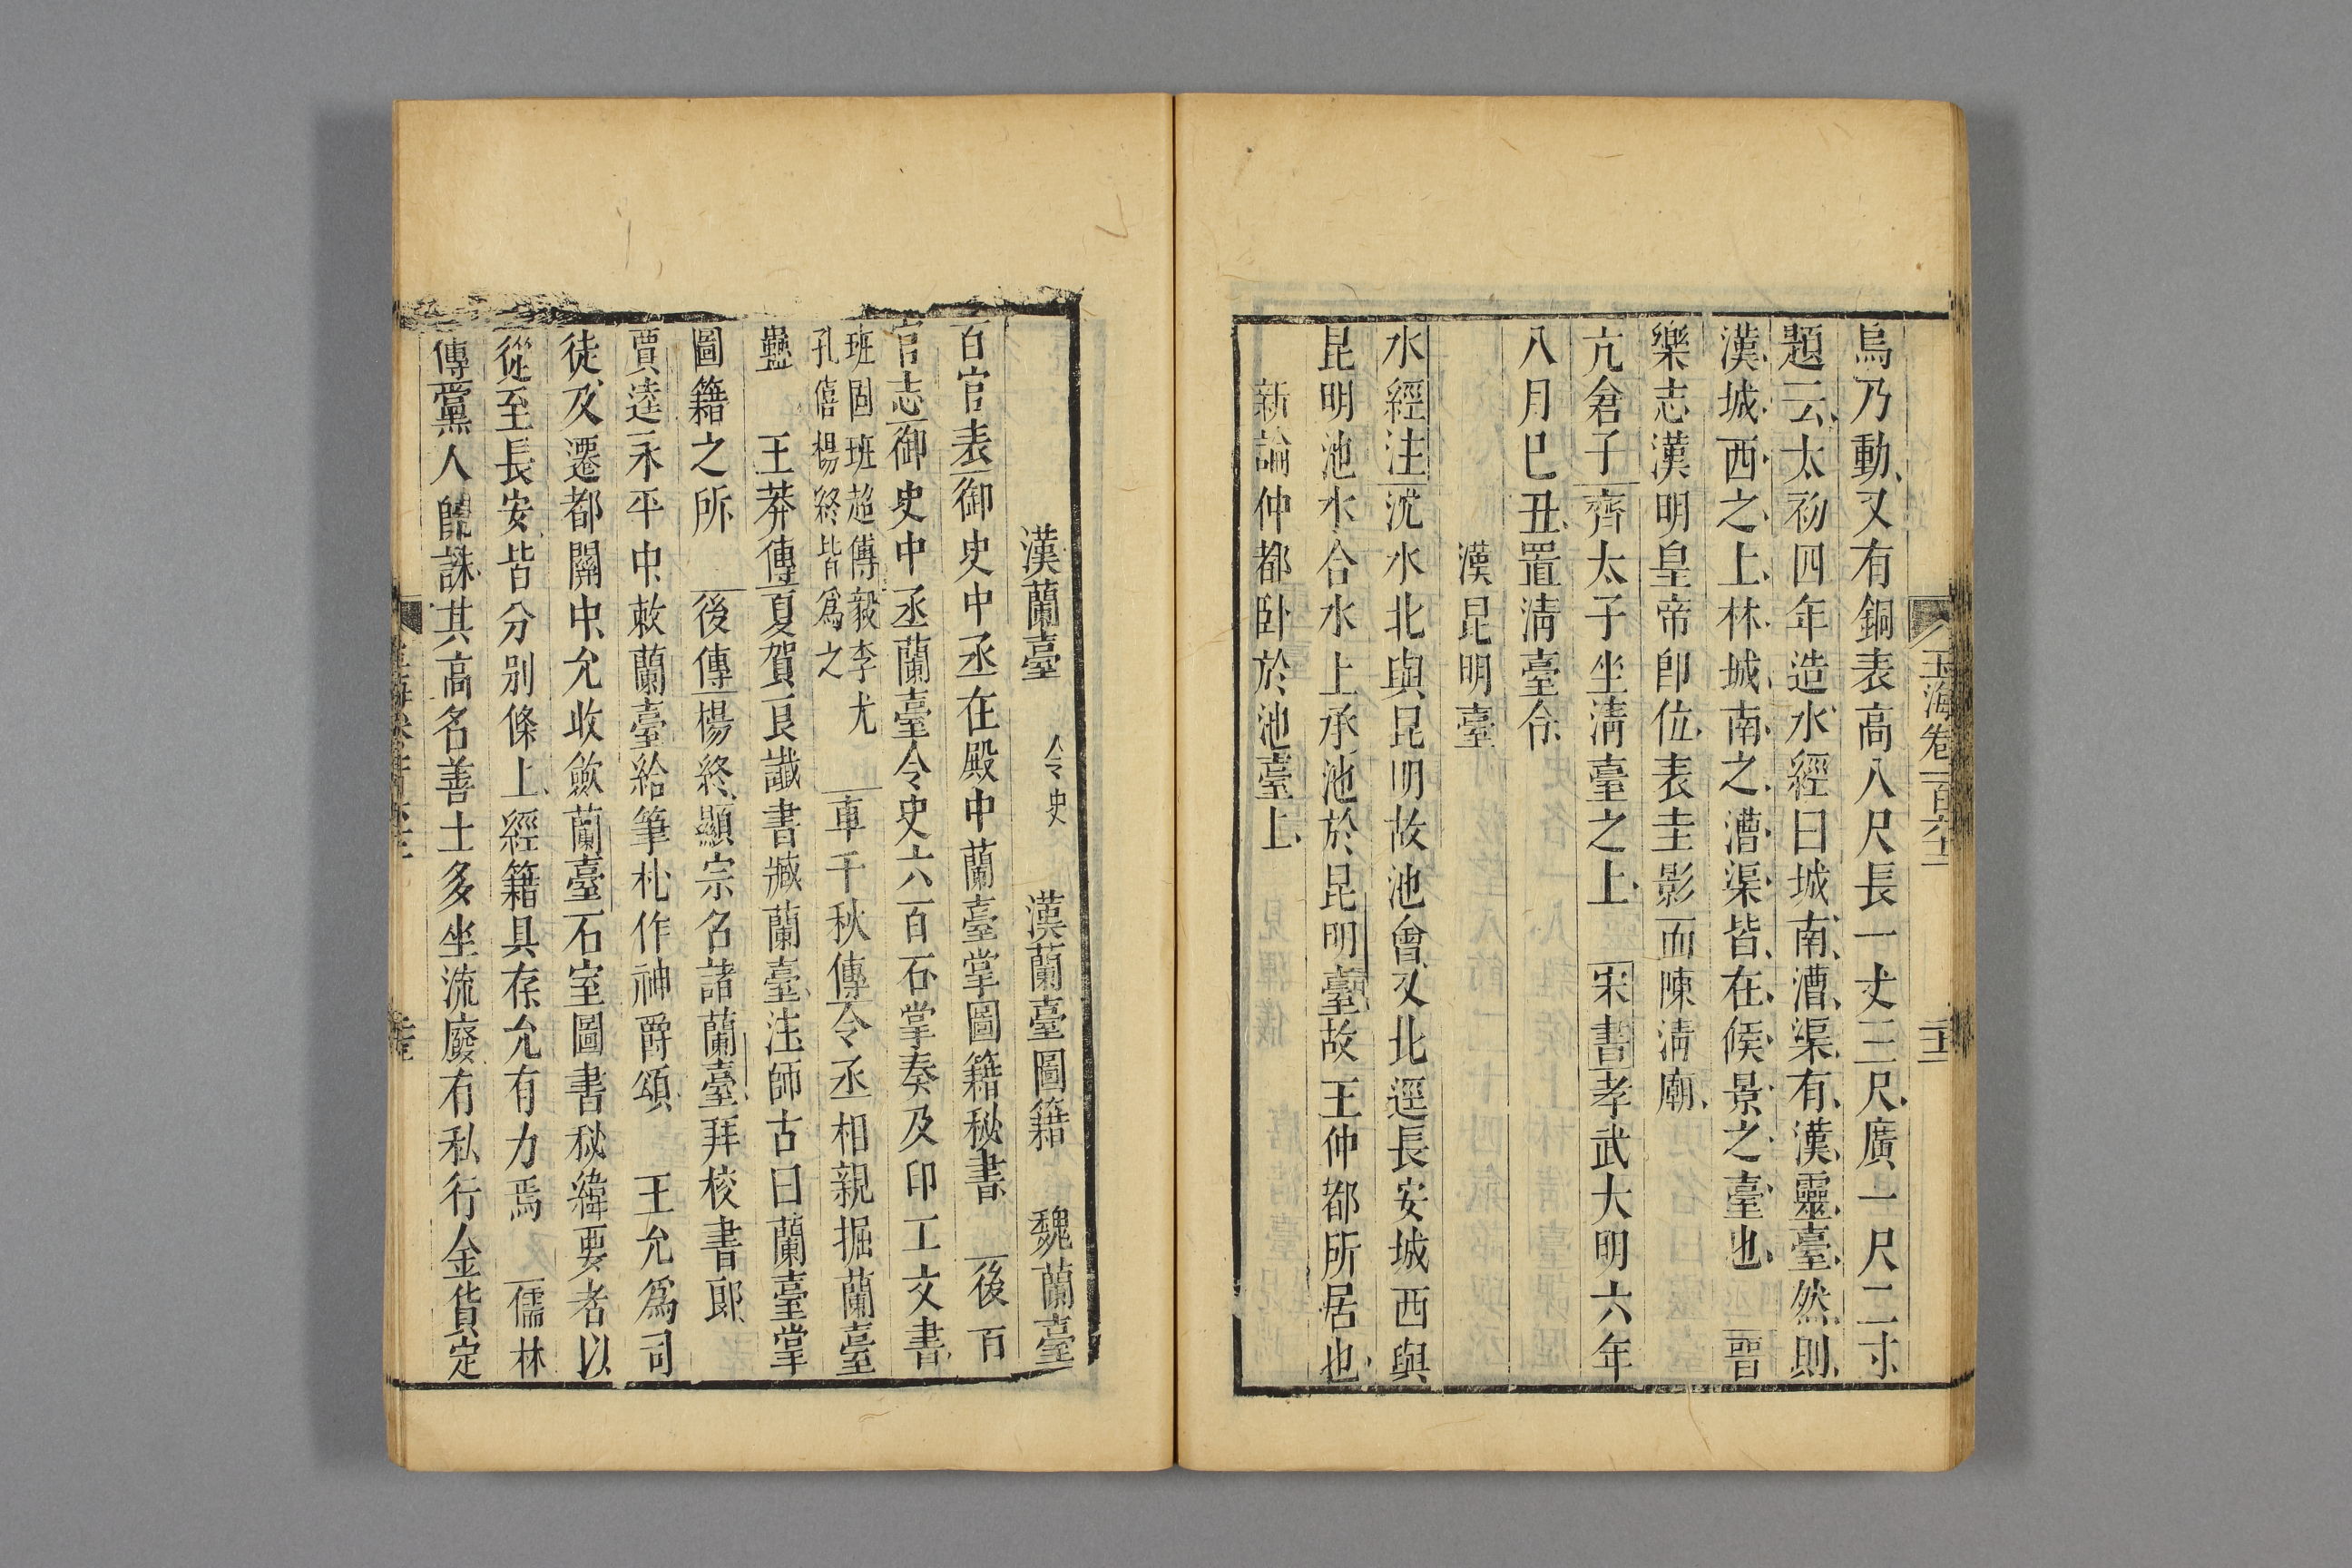 玉海卷一百六十二
烏乃動又有銅表高八尺長一丈三尺廣一尺二寸
題云太初四年造水經曰城南漕渠有漢靈臺然則
漢城西之上林城南之漕渠皆在候景之臺也 晉
樂志漢明皇帝卽位表圭影而陳淸廟
亢倉子齊太子坐淸臺之上 宋書孝武大明六年
八月巳丑置淸臺令
漢昆明臺
水經注沈水北與昆明故池會又北逕長安城西與
昆明池水合水上承池於昆明臺故王仲都所居也
新論仲都卧於池臺上
漢蘭臺 令史 漢蘭臺圖籍 魏蘭臺
百官表御史中丞在殿中蘭臺掌圖籍秘書 後百
官志御史中丞蘭臺令史六百石掌奏及印工文書
班固班超傅毅李尤
孔僖楊終皆爲之
車千秋傳令丞相親掘蘭臺
蠱 王莽傳夏賀艮讖書臧蘭臺注師古曰蘭臺掌
圖籍之所 後傳楊終顯宗名諸蘭臺拜校書郎
賈逵永平中敕蘭臺給筆札作神爵頌 王允爲司
徒及遷都關中允收歛蘭臺石室圖書秘緯要者以
從至長安皆分別條上經籍具存允有力焉 儒林
傳黨人旣誅其高名善士多坐流廢有私行金貨定